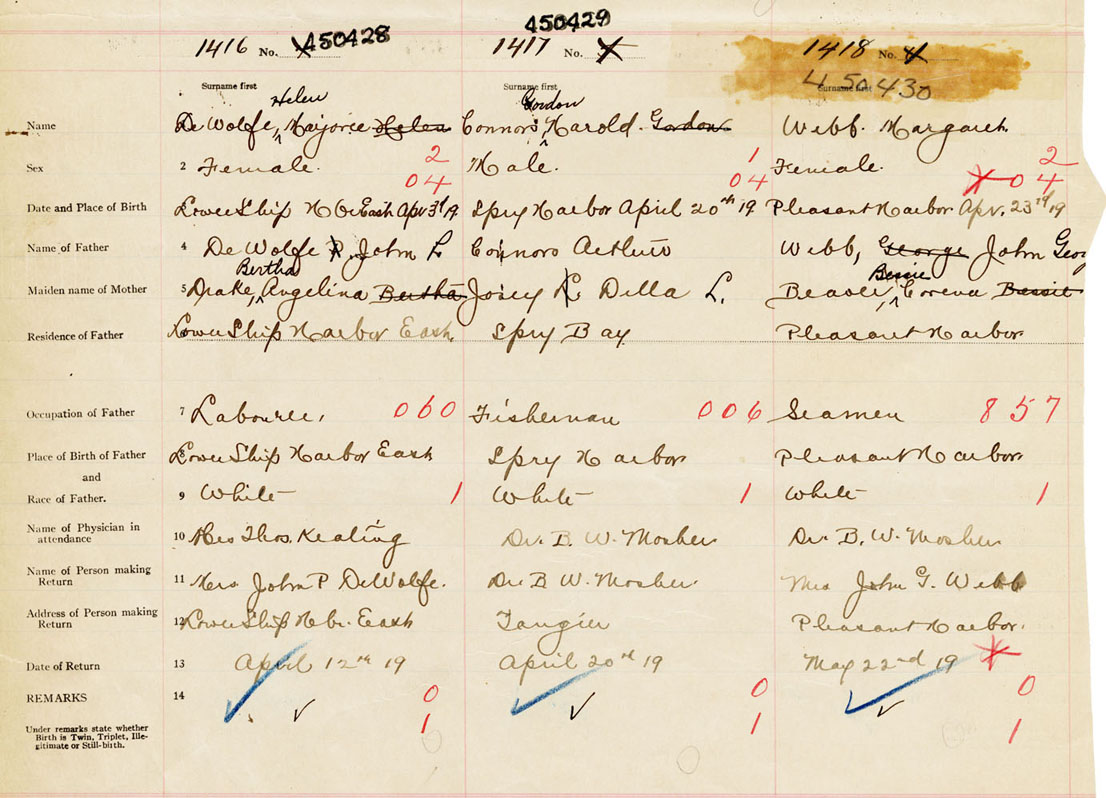 450428 450429
1416 No. X 1417 No. X 1418 No. 4
450430
Surname first Surname first Surname first
Helen Gordon
Name De Wolfe, Marjorie Helen Connors Harold. Gordon Webb. Margaret.
2 1 2
Sex 2 Female. Male. Female.
04 04 X 04
Date and Place of Birth Lower Ship Hbr East Apr 3rd 19 Spry Harbor April 20th 19 Pleasant Harbor Apr. 23rd 19
Name of Father 4 De Wolfe P. John L Connors Arthur Webb, George John Geor
Bertha Bessie
Maiden name of Mother 5 Drake, Angelina Bertha Josey Della L. Beaver, Bessie
Residence of Father Lower Ship Harbor East. Spry Bay Pleasant Harbor
Occupation of Father 7 Labourer, 060 Fisherman 006 Seamen 857
Place of Birth of Father Lower Ship Harbor East Spry Harbor Pleasant Harbor
and
Race of Father. 9 White 1 White 1 White 1
Name of Physician in
attendance 10 Mrs Thos. Keating Dr. B. W. Mosher Dr. B. W. Mosher
Name of Person making
Return 11 Mrs. John P DeWolfe. Dr B W. Mosher. Mrs John G. Webb
Address of Person making
Return 12 Lower Ship Hbr. East Tangier Pleasant Harbor.
Date of Return 13 April 12th 19 April 20th 19 May 22nd 19 X
REMARKS 14 0 0 0
Under remarks state whether
Birth is Twin, Triplet, Ille-
gitimate or Still-birth. 1 1 1